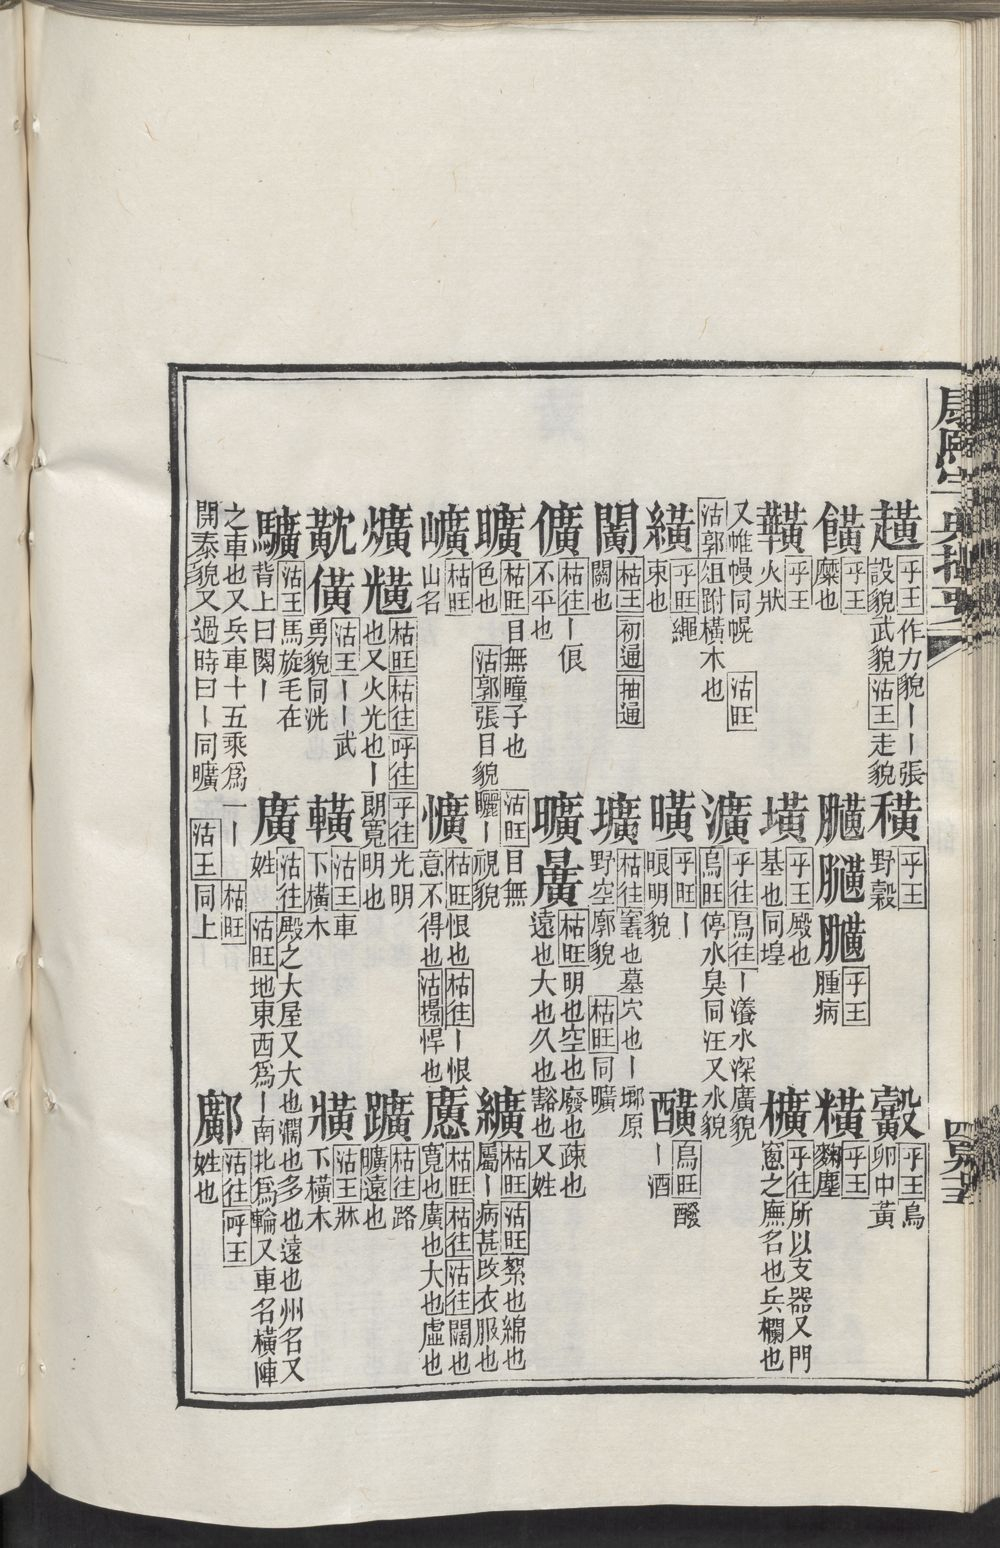 趪 乎王 作力貌丨丨張設貌武貌 沽王 走貌
穬 乎王 野穀
鷇 乎王 鳥卵中黃
䭒 乎王 糜也
乎王 腫病
糠 乎王 麴塵
䪄 乎王 火狀
墴 乎王 殿也基也同堭
櫎 乎往 所以支器又門窻之廡名也兵欄也
又帷幔同幌 沽旺
沽郭 俎跗橫木也
瀇 乎往 烏往 丨瀁水深廣貌 烏旺 停水臭同汪又水貌
纊 乎旺 繩束也
曂 乎旺 丨眼明貌
醟 烏旺 醱丨酒
闠 枯王 初通 抽通 闢也
壙 枯往 窀也墓穴也丨埌原野空廓貌 枯旺 同曠
儣 枯往 丨俍不平也
曠 枯旺 明也空也廢也疎也遠也大也久也豁也又姓
矌 枯旺 目無瞳子也色也 沽郭 張目貌
沽旺 目無矖丨視貌
纊 枯旺 沽旺 絮也綿也屬丨病甚改衣服也
㠠 枯旺 山名
懭 枯旺 恨也 枯往 丨恨意不得也 沽壜 悍也
懬 枯旺 枯往 沽往 闊也寬也廣也大也虛也
爌 枯旺 枯往 呼往 乎往 光明也又火光也丨朗寬明也
躌 枯往 路曠遠也
僙 沽王 丨丨武勇貌同洸
䡤 沽王 車下橫木
㸠 沽王 牀下橫木
驥 沽王 馬旋毛在背上曰闋丨
廣 沽往 殿之大屋又大也濶也多也遠也州名又姓 沽旺 地東西爲丨南北爲輪又車名橫陣
之車也又兵車十五乘爲一丨 枯旺
開泰貌又過時曰丨同曠 沽王 同上
鄺 沽往 呼王 姓也